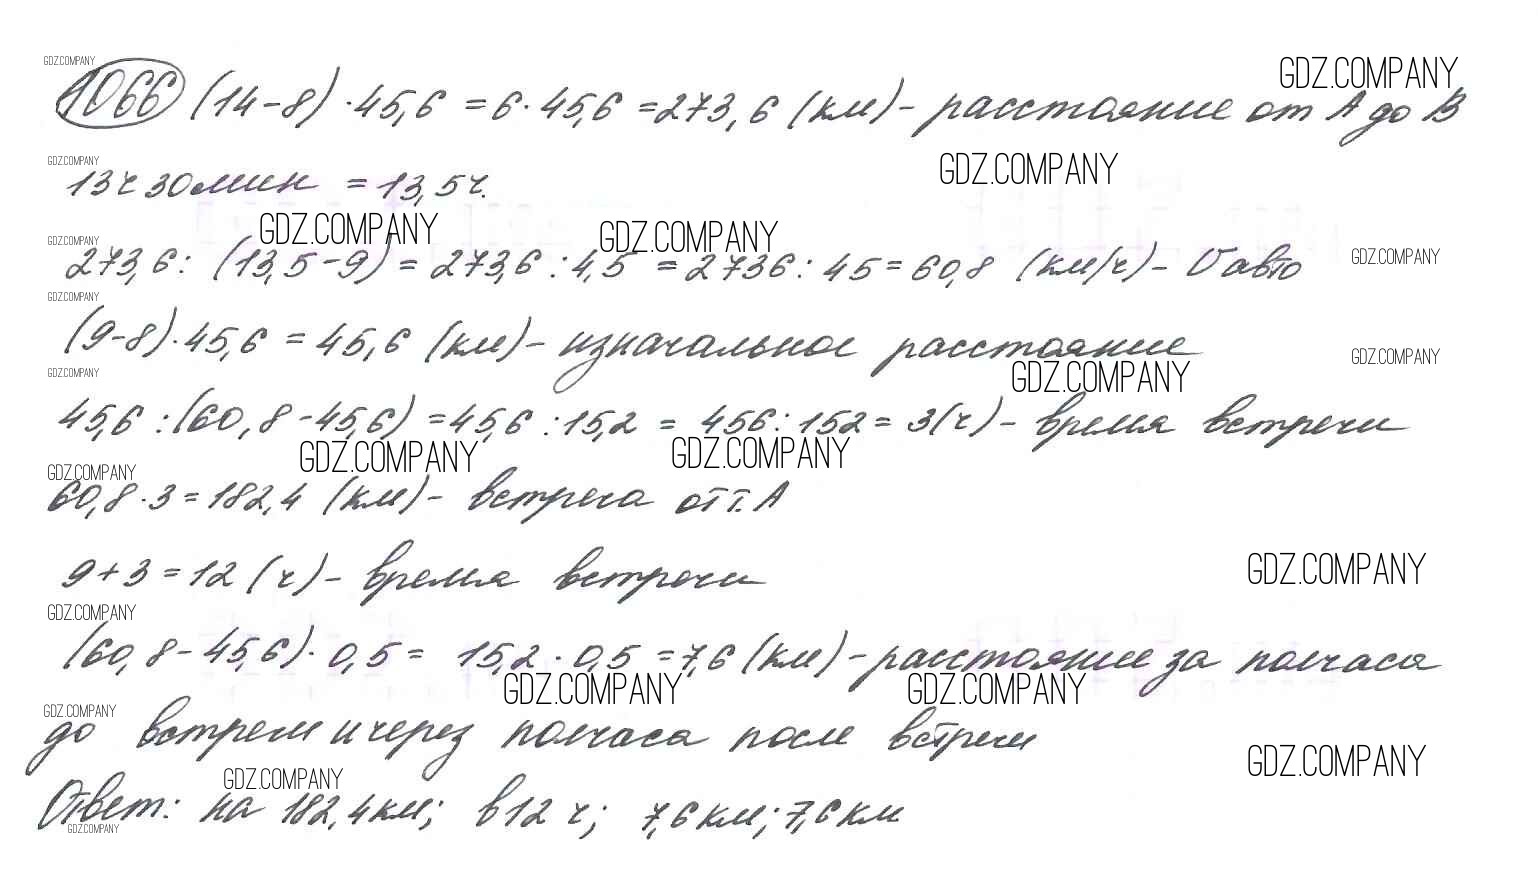 GDZ.COMPANY
GDZ.COMPANY
1066 (14-8) · 45,6 = 6 · 45,6 = 273,6 (км) - расстояние от А до В
GDZ.COMPANY
GDZ.COMPANY
13ч 30 мин = 13,5ч.
GDZ.COMPANY GDZ.COMPANY
GDZ.COMPANY
273,6 : (13,5-9) = 273,6 : 4,5 = 2736 : 45 = 60,8 (км/ч) - V авто
GDZ.COMPANY
GDZ.COMPANY
(9-8) · 45,6 = 45,6 (км) - изначальное расстояние
GDZ.COMPANY
GDZ.COMPANY
GDZ.COMPANY
45,6 : (60,8-45,6) = 45,6 : 15,2 = 456 : 152 = 3(ч) - время встречи
GDZ.COMPANY GDZ.COMPANY
GDZ.COMPANY
60,8 · 3 = 182,4 (км) - встреча от т. А
GDZ.COMPANY
9+3 = 12 (ч) - время встречи
GDZ.COMPANY
(60,8-45,6) · 0,5 = 15,2 · 0,5 = 7,6 (км) - расстояние за полчаса
GDZ.COMPANY GDZ.COMPANY
GDZ.COMPANY
до встречи и через полчаса после встречи
GDZ.COMPANY
GDZ.COMPANY
Ответ: на 182,4 км; в 12 ч; 7,6 км; 7,6 км
GDZ.COMPANY